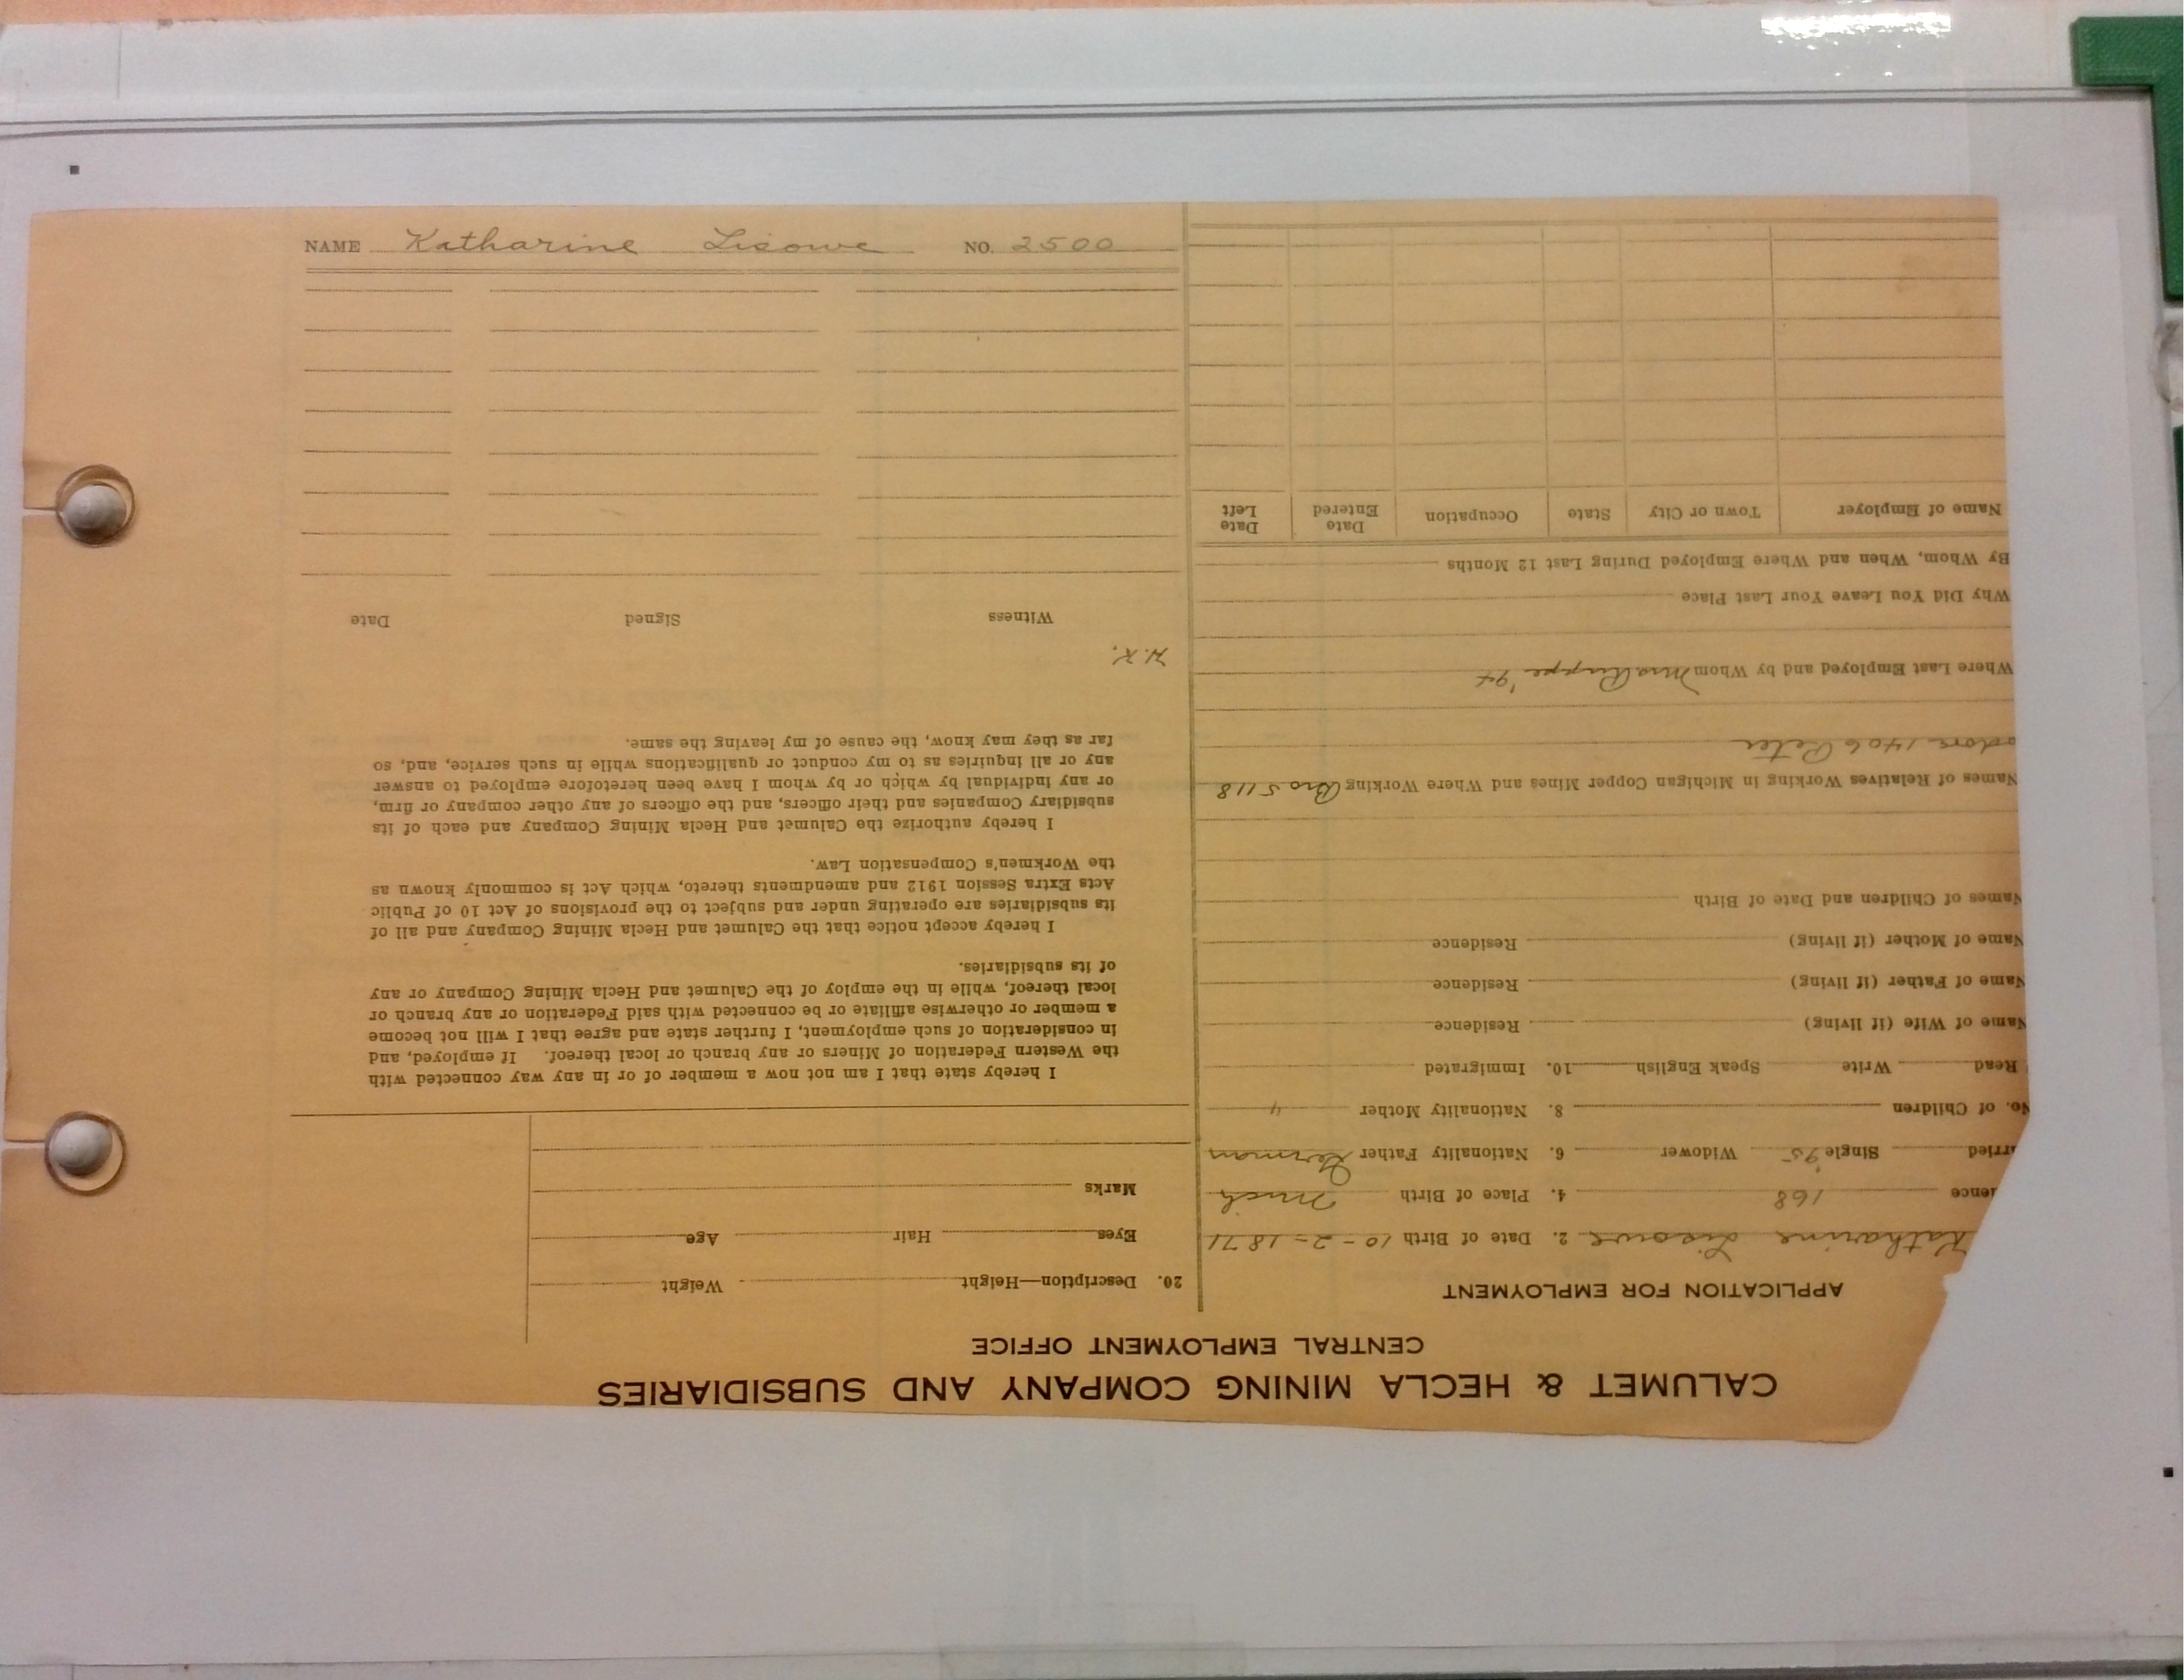 CALUMET & HECLA MINING COMPANY AND SUBSIDIARIES
CENTRAL EMPLOYMENT OFFICE
APPLICATION FOR EMPLOYMENT
Katharine Lisowe 2. Date of Birth 10-2-1871
dence 168 4. Place of Birth Mich
rried Single '95 Widower 6. Nationality Father German
No. of Children 8. Nationality Mother "
Read Write Speak English 10. Immigrated
Name of Wife (if living) Residence
Name of Father (if living) Residence
Name of Mother (if living) Residence
Names of Children and Date of Birth
Names of Relatives Working in Michigan Copper Mines and Where Working Bro 5118
1406 Peter
Where Last Employed and by Whom Mrs Ruppe '94
Why Did You Leave Your Last Place
By Whom, When and Where Employed During Last 12 Months
Name of Employer Town or City State Occupation Date Entered Date Left
20. Description—Height Weight
Eyes Hair Age
Marks
I hereby state that I am not now a member of or in any way connected with
the Western Federation of Miners or any branch or local thereof. If employed, and
in consideration of such employment, I further state and agree that I will not become
a member or otherwise affiliate or be connected with said Federation or any branch or
local thereof, while in the employ of the Calumet and Hecla Mining Company or any
of its subsidiaries.
I hereby accept notice that the Calumet and Hecla Mining Company and all of
its subsidiaries are operating under and subject to the provisions of Act 10 of Public
Acts Extra Session 1912 and amendments thereto, which Act is commonly known as
the Workmen's Compensation Law.
I hereby authorize the Calumet and Hecla Mining Company and each of its
subsidiary Companies and their officers, and the officers of any other company or firm,
or any individual by which or by whom I have been heretofore employed to answer
any or all inquiries as to my conduct or qualifications while in such service, and, so
far as they may know, the cause of my leaving the same.
H.K.
Witness Signed Date
NAME Katharine Lisowe NO. 2500